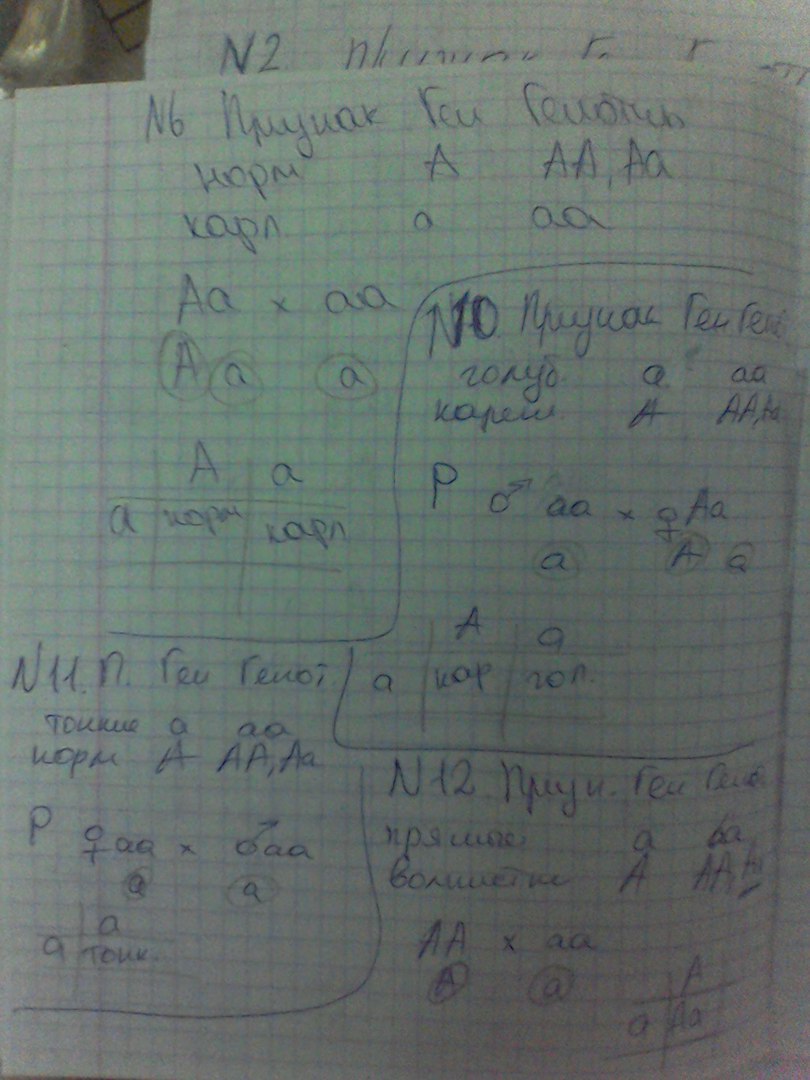 N2
N6 Признак Ген Генотип
норм A AA, Aa
карл. a aa
Aa x aa
A a a
A a
a норм карл
N10 Признак Ген Ген
голуб. a aa
карие A AA, Aa
P ♂ aa x ♀ Aa
a A a
A a
a кар гол.
N11. П. Ген Генот
тонкие a aa
норм A AA, Aa
P ♀ aa x ♂ aa
a a
a
a тонк.
N12 Призн. Ген
прямые a aa
A AA
AA x aa
A a
A
a Aa